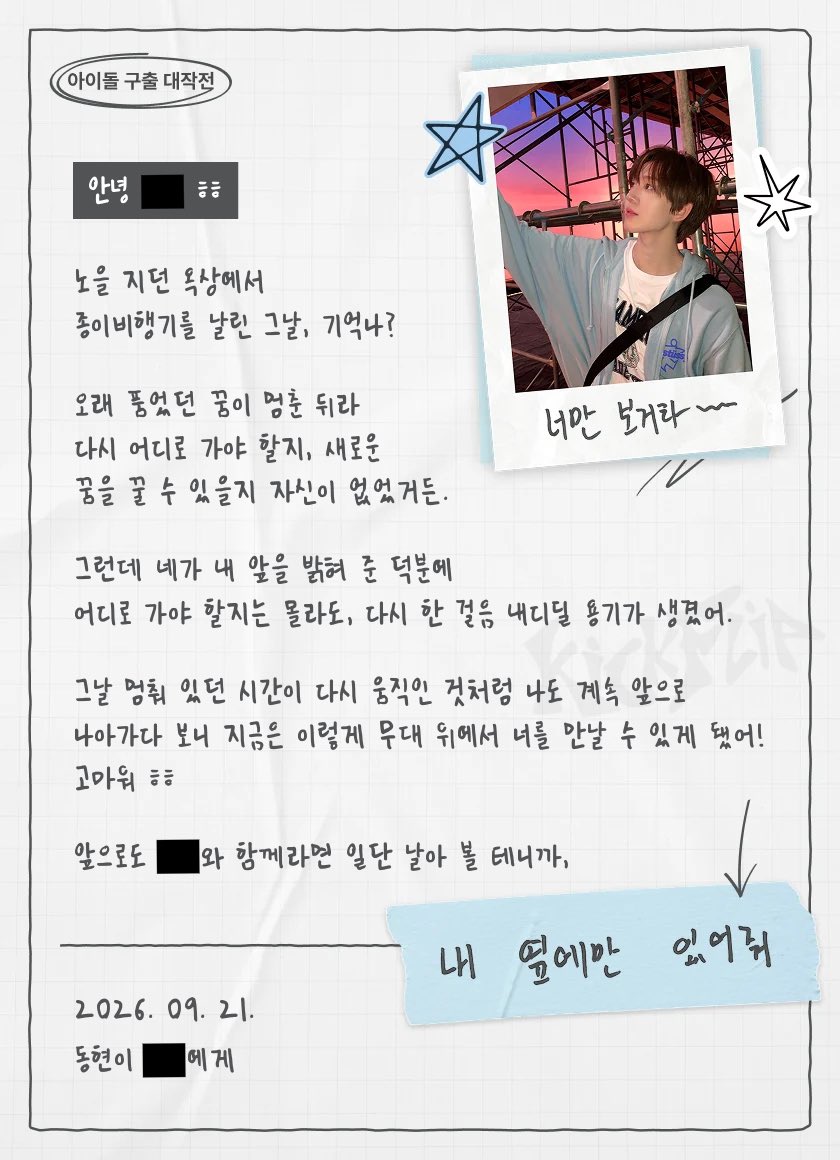 아이돌 구출 대작전
안녕 ㅎㅎ
노을 지던 옥상에서
종이비행기를 날린 그날, 기억나?
너만 보거라
오래 품었던 꿈이 멈춘 뒤라
다시 어디로 가야 할지, 새로운
꿈을 꿀 수 있을지 자신이 없었거든.
그런데 네가 내 앞을 밝혀 준 덕분에
어디로 가야 할지는 몰라도, 다시 한 걸음 내디딜 용기가 생겼어.
KickFlip
그날 멈춰 있던 시간이 다시 움직인 것처럼 나도 계속 앞으로
나아가다 보니 지금은 이렇게 무대 위에서 너를 만날 수 있게 됐어!
고마워 ㅎㅎ
앞으로도 와 함께라면 일단 날아 볼 테니까,
내 옆에만 있어줘
2026. 09. 21.
동현이 에게